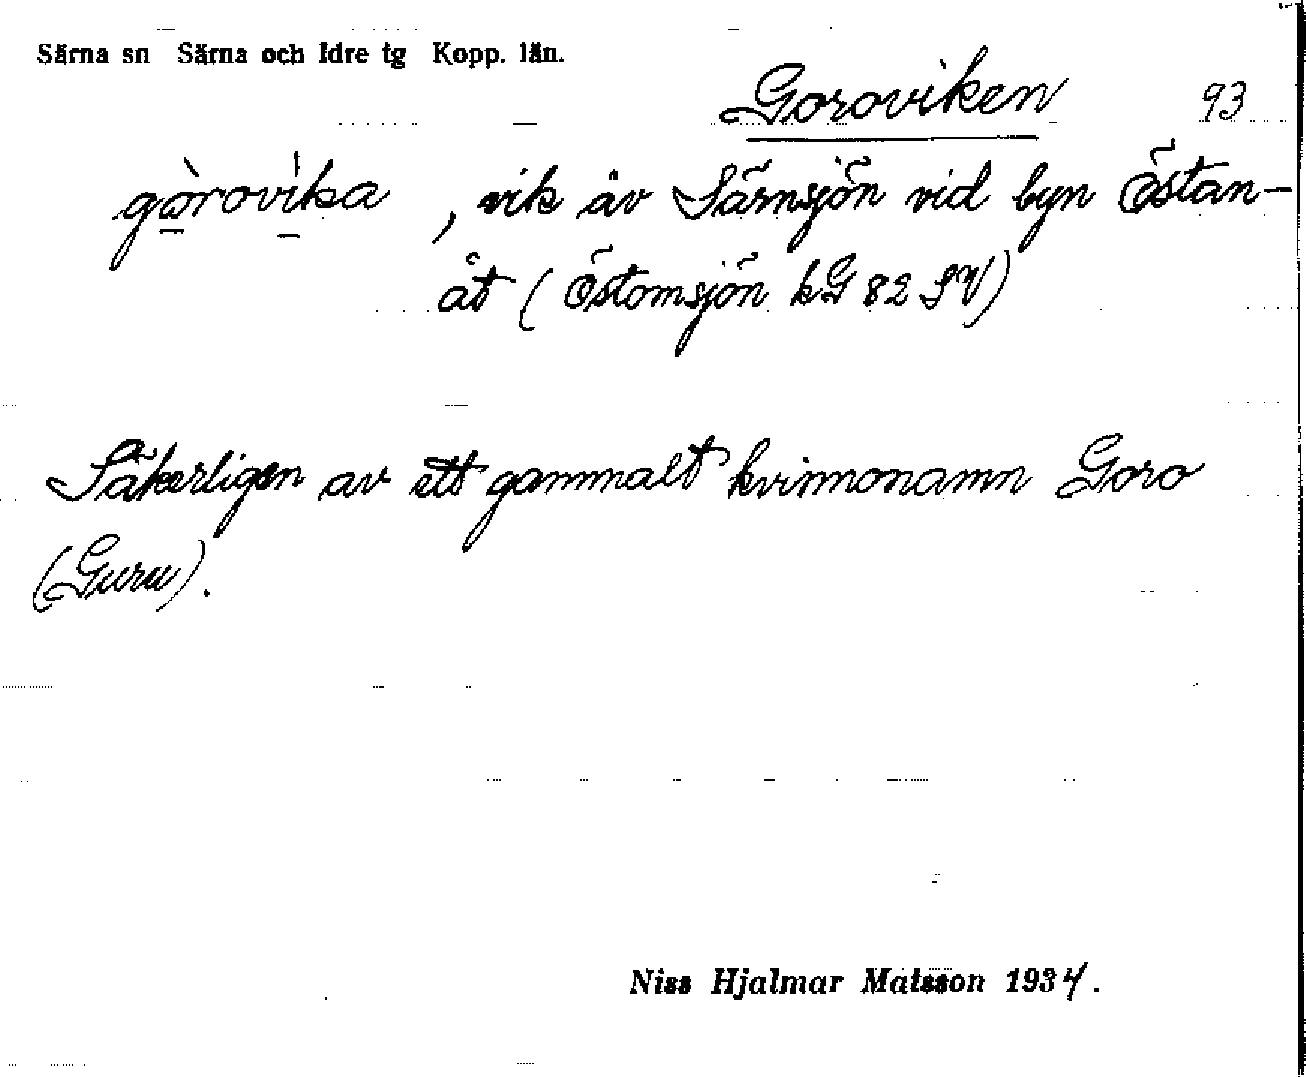 Särna sn Särna och Idre tg Kopp. län.
Goroviken 93
gòrovìka , vik av Särnsjön vid byn Östan-
åt ( Östomsjön kG 82 SV)
Säkerligen av ett gammalt kvinnonamn Goro
(Guru).
Niss Hjalmar Matsson 1934.